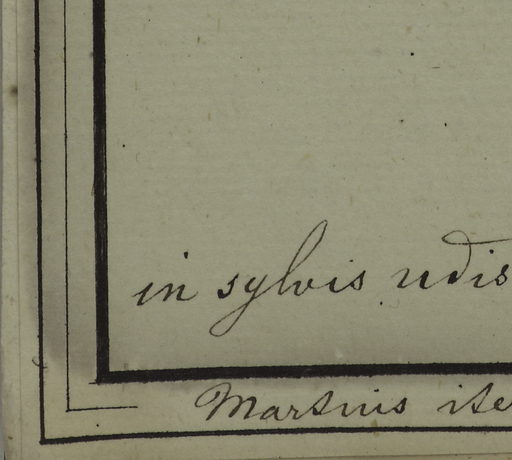 in sylvis udis
Martius ite